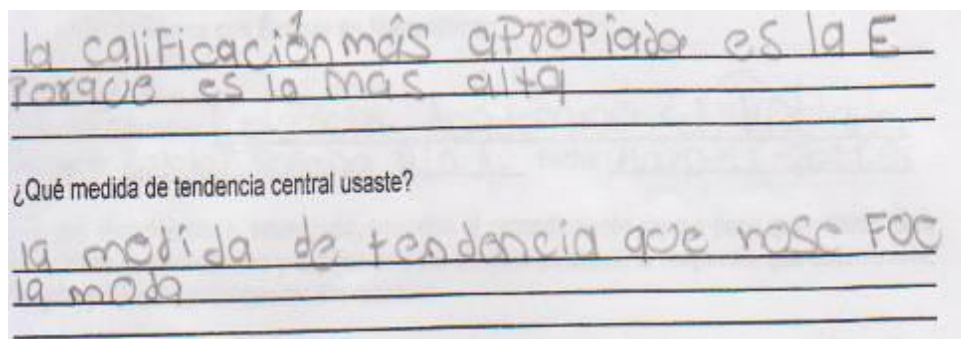 la calificación más apropiada es la E
Porque es la mas alta
¿Qué medida de tendencia central usaste?
la medida de tendencia que FOC
la moda